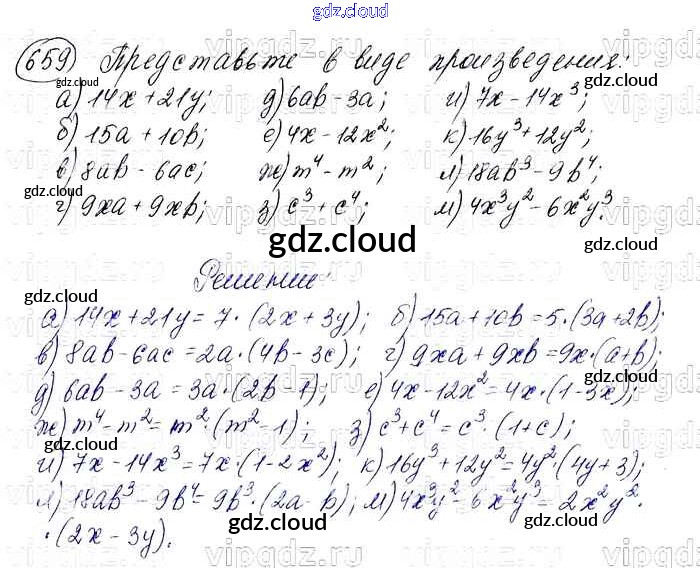 gdz.cloud
659 Представьте в виде произведения:
gdz.cloud
а) 14x + 21y; д) 6ab - 3a; и) 7x - 14x³;
б) 15a + 10b; е) 4x - 12x²; к) 16y³ + 12y²;
в) 8ab - 6ac; ж) m⁴ - m²; л) 18ab³ - 9b⁴;
г) 9xa + 9xb; з) c³ + c⁴; м) 4x³y² - 6x²y³.
gdz.cloud
gdz.cloud
gdz.cloud
Решение:
gdz.cloud
gdz.cloud
а) 14x + 21y = 7 · (2x + 3y); б) 15a + 10b = 5 · (3a + 2b);
в) 8ab - 6ac = 2a · (4b - 3c); г) 9xa + 9xb = 9x · (a + b);
gdz.cloud
д) 6ab - 3a = 3a · (2b - 1); е) 4x - 12x² = 4x · (1 - 3x);
ж) m⁴ - m² = m² · (m² - 1); з) c³ + c⁴ = c³ · (1 + c);
gdz.cloud
и) 7x - 14x³ = 7x · (1 - 2x²); к) 16y³ + 12y² = 4y² · (4y + 3);
л) 18ab³ - 9b⁴ = 9b³ · (2a - b); м) 4x³y² - 6x²y³ = 2x²y² ·
gdz.cloud
gdz.cloud
· (2x - 3y).
gdz.cloud